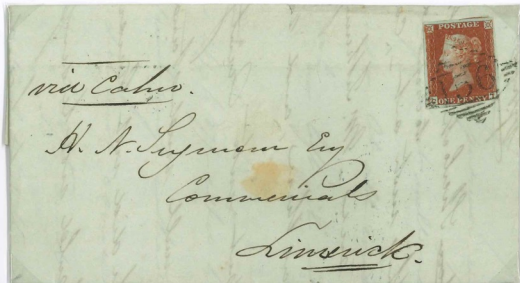 POSTAGE
ONE PENNY
via Cahir.
H. N. Seymour Esq
Commercials
Limerick.